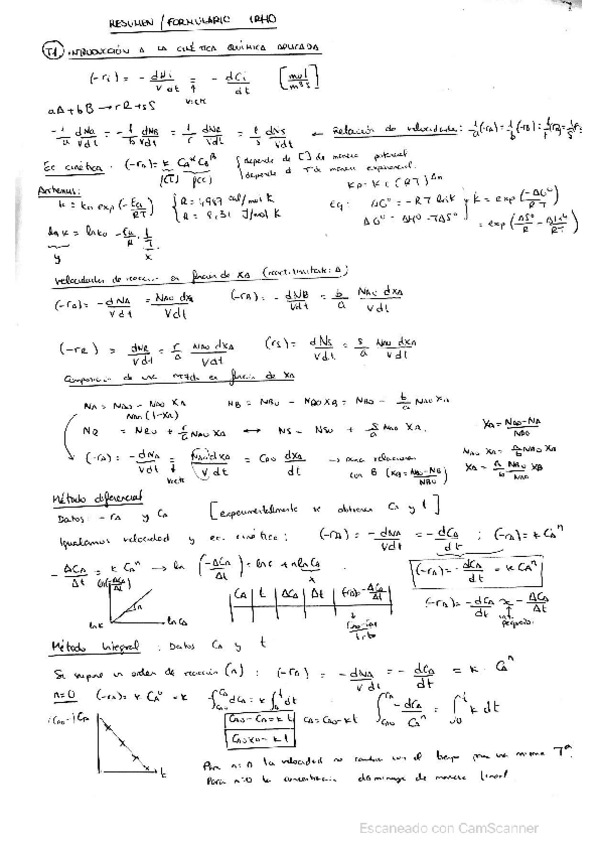 RESUMEN / FORMULARIO IRHO
T1 INTRODUCCIÓN A LA CINÉTICA QUÍMICA APLICADA
(-ri) = - dNi / V dt = - dCi / dt [mol / m³ s]
V=cte
aA + bB → rR + sS
-1/a dNA/Vdt = -1/b dNB/Vdt = 1/r dNR/Vdt = 1/s dNS/Vdt ← Relación de velocidades: 1/a(-rA) = 1/b(-rB) = 1/r
Ec cinética: (-rA) = k CA^α CB^β { depende de [] de manera potencial
f(T) f(C) depende d T de manera exponencial.
Kp = Kc (RT)^Δn
Arrhenius:
k = k0 exp(-Ea/RT) { R = 1,987 cal/mol K
R = 8,31 J/mol K
Eq: ΔG⁰ = -RT ln k y k = exp(-ΔG⁰/RT)
ΔG⁰ = ΔH⁰ - TΔS⁰ = exp(ΔS⁰/R - ΔH⁰/RT)
ln k = ln k0 - Ea/R · 1/T
y x
Velocidades de reacción en función de XA (react. limitante: A)
(-rA) = - dNA/Vdt = NA0 dXA/Vdt (-rB) = - dNB/Vdt = b/a NA0 dXA/Vdt
(-rR) = dNR/Vdt = r/a NA0 dXA/Vdt (rS) = dNS/Vdt = s/a NA0 dXA/Vdt
Composición de una mezcla en función de XA
NA = NA0 - NA0 XA NB = NB0 - NB0 XB = NB0 - b/a NA0 XA
NA0 (1-XA)
NR = NR0 + r/a NA0 XA ↔ NS = NS0 + s/a NA0 XA.
XA = NA0-NA / NA0
(-rA) = - dNA/Vdt = NA0 dXA/Vdt = CA0 dXA/dt → relaciona con B (XB = NB0-NB / NB0)
V=cte
Método diferencial
Datos: -rA y CA [experimentalmente se obtienen CA y t]
Igualamos velocidad y ec. cinética: (-rA) = - dNA/Vdt = - dCA/dt ; (-rA) = k CA^n
- ΔCA/Δt = k CA^n → ln(-ΔCA/Δt) = ln k + n ln CA
x
(-rA) = - dCA/dt = k CA^n
ln(-ΔCA/Δt)
n
ln k ln CA
CA t ΔCA Δt f(rA) = -ΔCA/Δt
(-rA) = - dCA/dt ≈ - ΔCA/Δt
int. pequeños
Método Integral: Datos CA y t
Se supone un orden de reacción (n): (-rA) = - dNA/Vdt = - dCA/dt = k · CA^n
n=0 (-rA) = k CA⁰ = k ∫CA0 CA dCA = k ∫0 t dt ∫CA0 CA - dCA/CA^n = ∫0 t k dt
CA0 - CA = k t CA = CA0 - kt
CA0 XA = k t
t
Para n=0 la velocidad no cambia con el tiempo para una misma Tª
Para n=0 la concentración disminuye de manera lineal
Escaneado con CamScanner